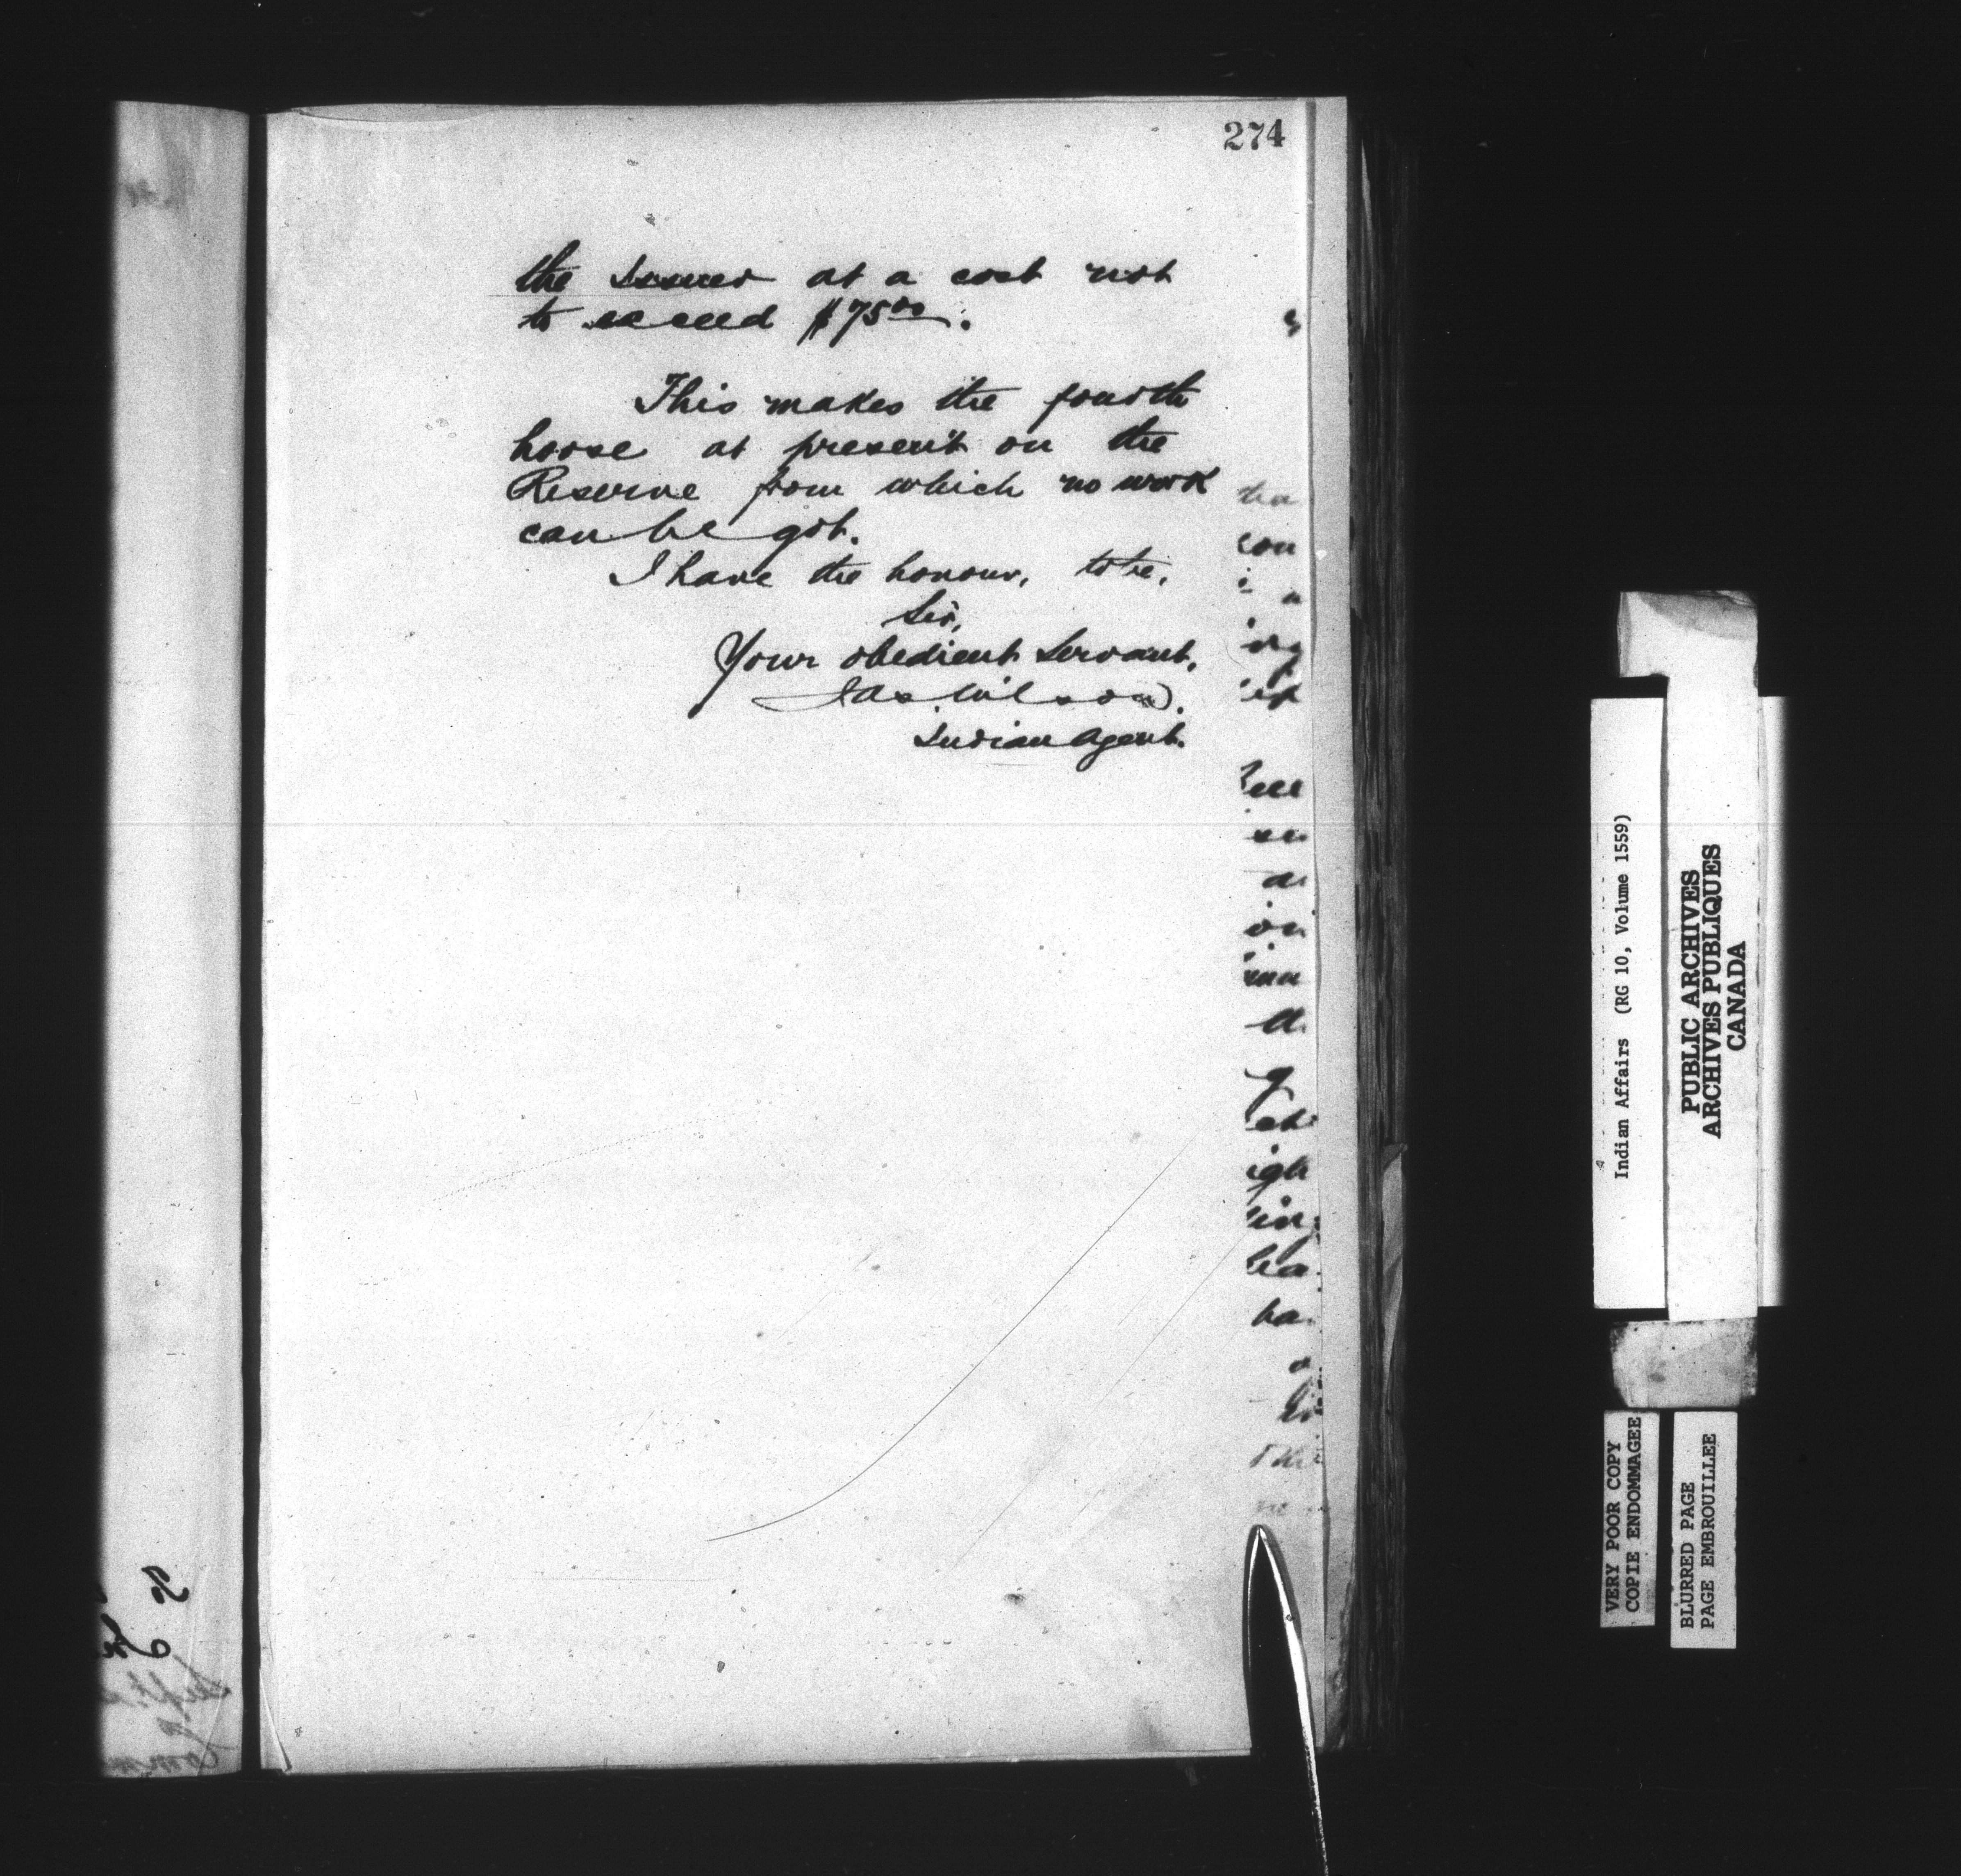 274
the Issuer at a cost not
to exceed $75 00.
This makes the fourth
horse at present on the
Reserve from which no work
can be got.
I have the honour, to be,
Sir,
Your obedient Servant,
Jas. Wilson.
Indian Agent.
Indian Affairs (RG 10, Volume 1559)
PUBLIC ARCHIVES
ARCHIVES PUBLIQUES
CANADA
VERY POOR COPY
COPIE ENDOMMAGEE
BLURRED PAGE
PAGE EMBROUILLEE